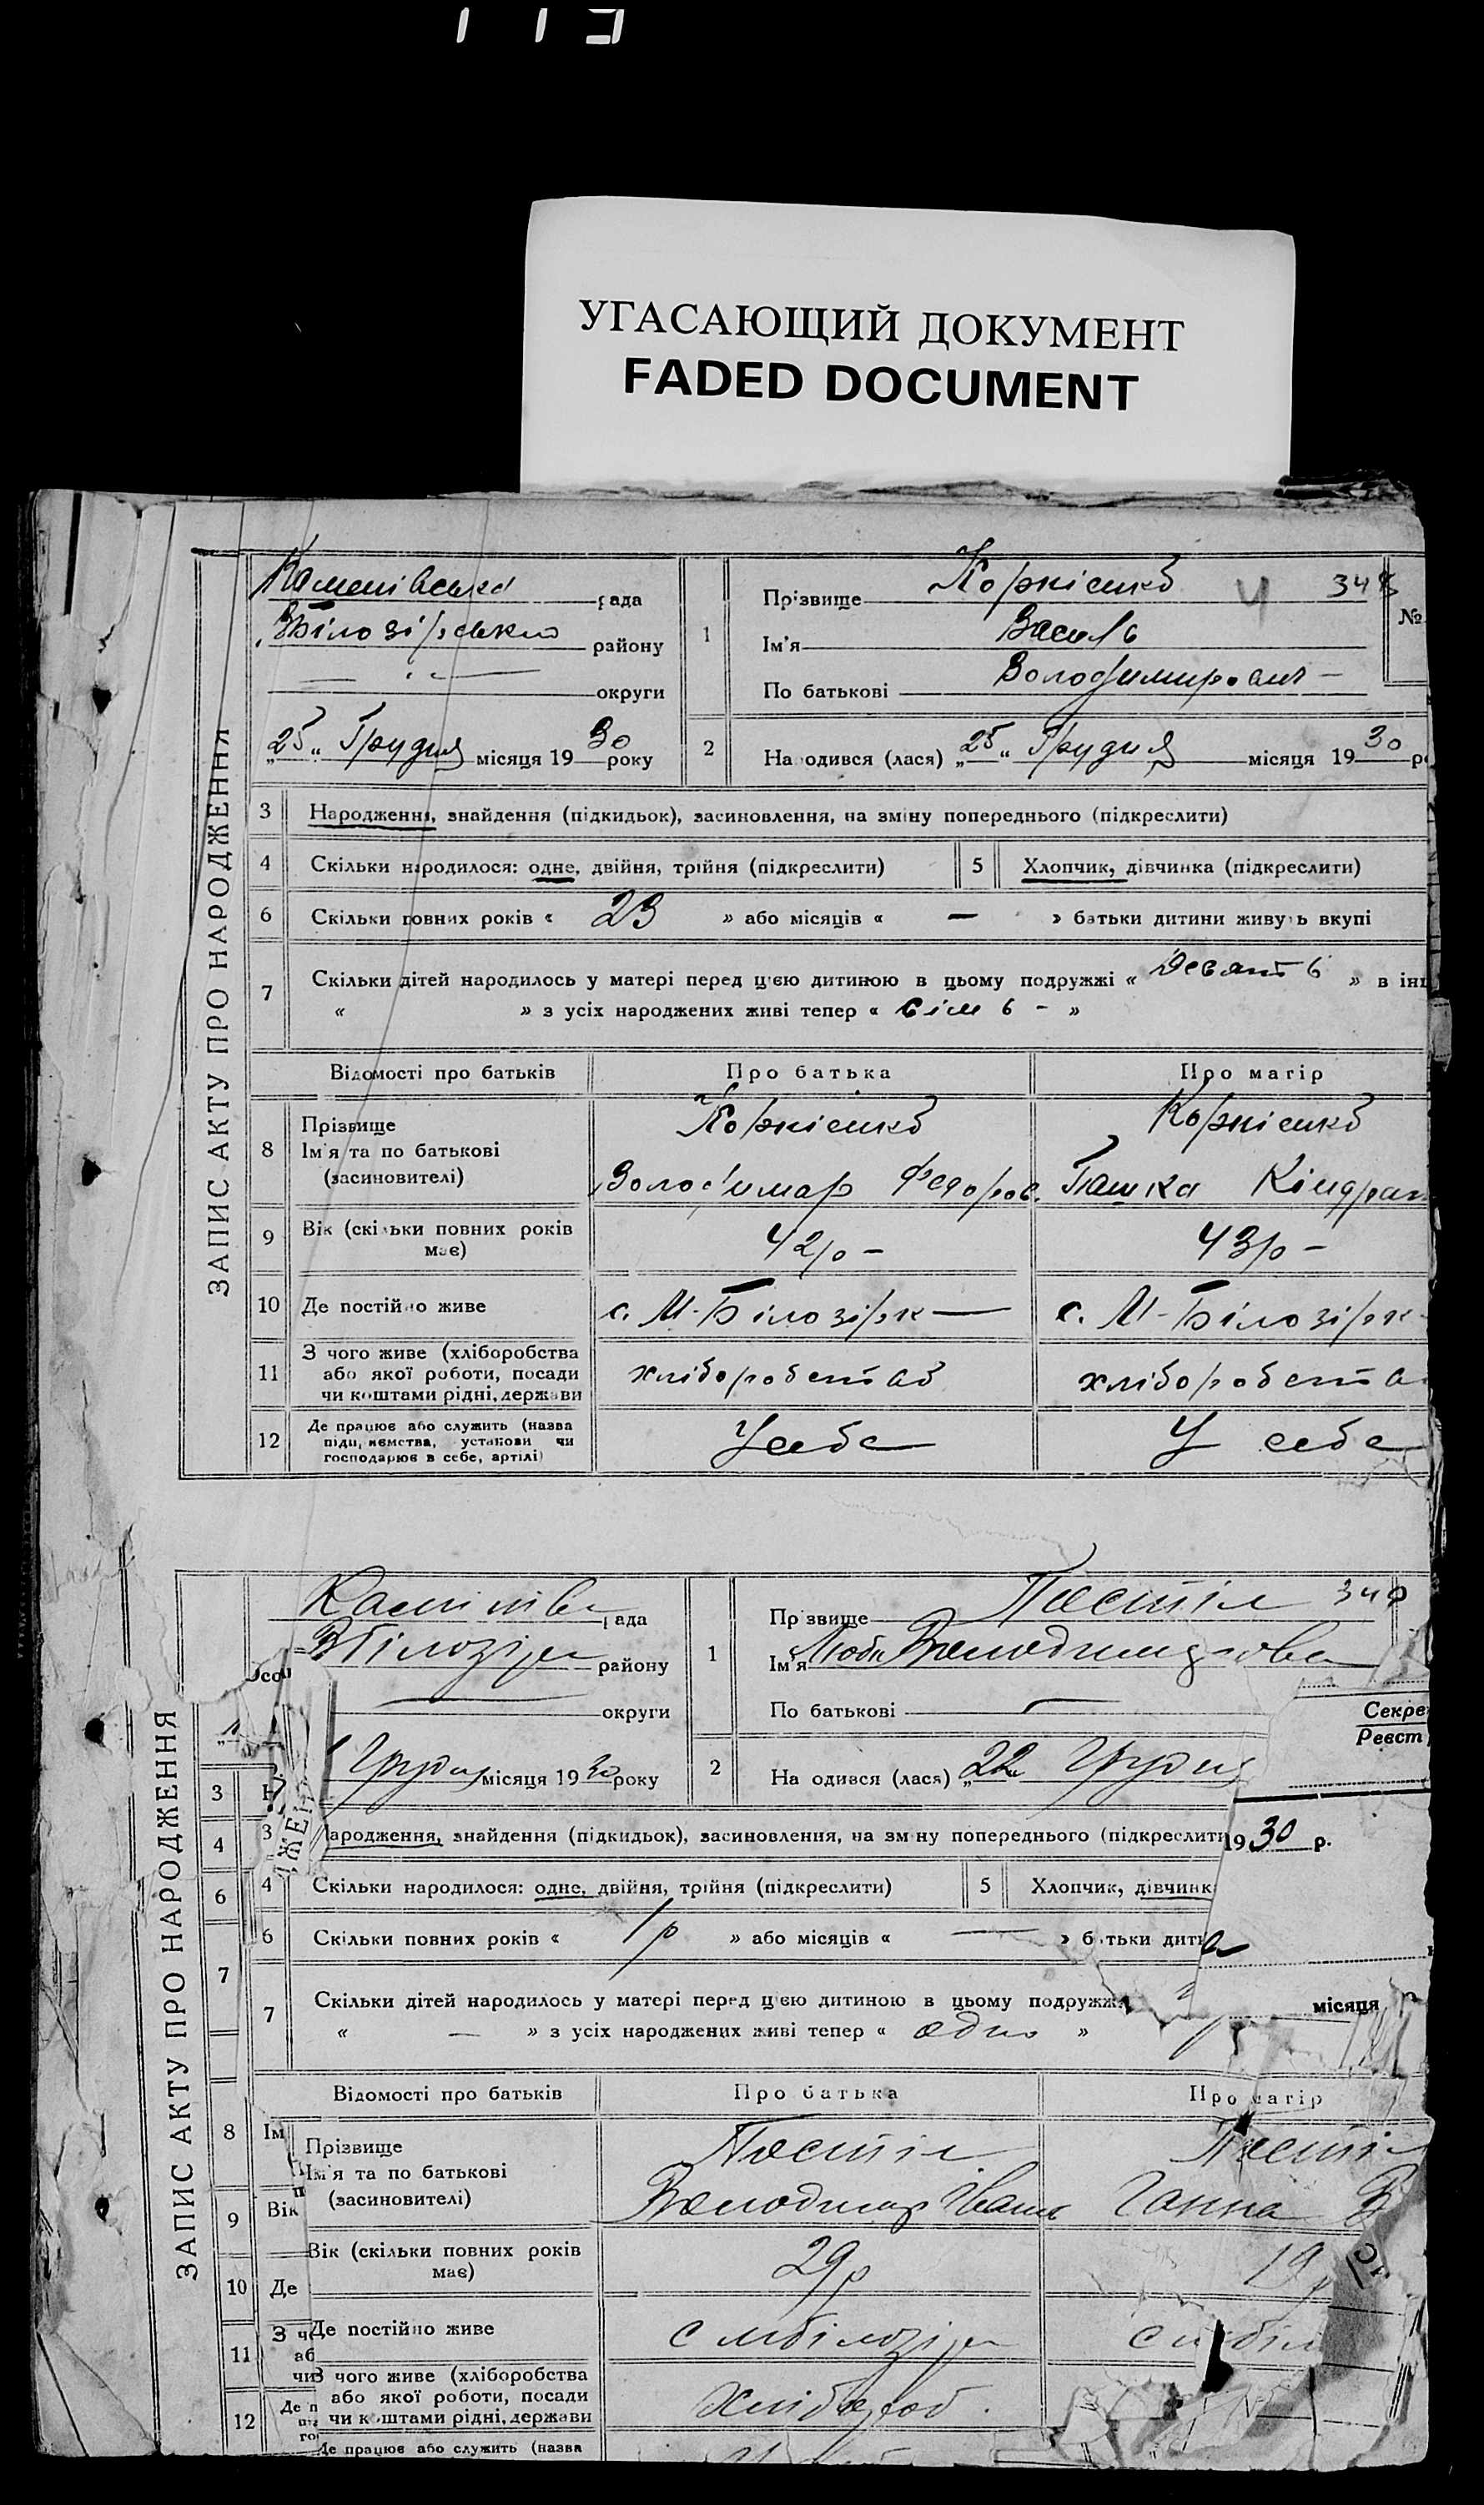 УГАСАЮЩИЙ ДОКУМЕНТ
FADED DOCUMENT
ЗАПИС АКТУ ПРО НАРОДЖЕННЯ
рада
району
округи
„25“ Грудня місяця 1930 року
1
Прізвище Корнієнко 348
№
Ім'я Василь
По батькові Володимирович -
2
Народився (лася) „25“ Грудня місяця 1930
3 Народження, знайдення (підкидьок), засиновлення, на зміну попереднього (підкреслити)
4 Скільки народилося: одне, двійня, трійня (підкреслити) 5 Хлопчик, дівчинка (підкреслити)
6 Скільки повних років « 23 » або місяців « — » батьки дитини живуть вкупі
7 Скільки дітей народилось у матері перед цією дитиною в цьому подружжі « Девять » в
« » з усіх народжених живі тепер « сім ь - »
Відомості про батьків Про батька Про матір
8 Прізвище Корнієнко Корнієнко
Ім'я та по батькові
(засиновителі) Володимар Федоров. Пашка Кіндрат
9 Вік (скільки повних років має) 42 р - 43 р -
10 Де постійно живе с. М-Білозірк— с. М-Білозірк-
11 З чого живе (хліборобства
або якої роботи, посади
чи коштами рідні, держави хліборобство хліборобст
12 Де працює або служить (назва
підприємства, установи чи
господарює в себе, артілі) У себе У себе
ЗАПИС АКТУ ПРО НАРОДЖЕННЯ
рада
району
округи
Грудня місяця 1930 року
1
Прізвище Постіл 340
Ім'я Люба Володимирова
По батькові —
Секре
Реєст
2
Народився (лася) „22“ Грудня
1930 р.
3 Народження, знайдення (підкидьок), засиновлення, на зміну попереднього (підкреслити
4 Скільки народилося: одне, двійня, трійня (підкреслити) 5 Хлопчик, дівчинк
6 Скільки повних років « 1 р » або місяців « — » батьки дит
7 Скільки дітей народилось у матері перед цією дитиною в цьому подружж
місяця
« — » з усіх народжених живі тепер « одно »
Відомості про батьків Про батька Про матір
8 Ім
Прізвище Постіл Пості
Ім'я та по батькові
(засиновителі) Володимир Іван Ганна В
9 Вік
Вік (скільки повних років має) 29 р 19
10 Де
Де постійно живе с мбілозір с мбіл
11 З чого живе (хліборобства
або якої роботи, посади
чи коштами рідні, держави хлібороб.
12 Де працює або служить (назва